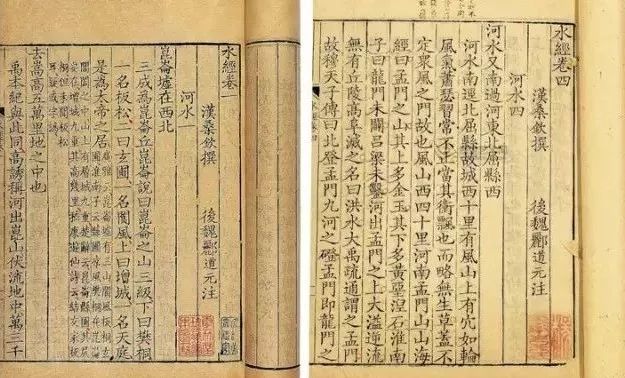 水經卷一
漢桑欽撰 後魏酈道元注
河水一
崑崙墟在西北
三成為崑崙丘崑崙說曰崑崙之山三級下曰樊桐
一名板松二曰玄圃一名閬風上曰增城一名天庭
是為太帝之居
去嵩高五萬里地之中也
禹本紀與此同高誘稱河出崑山伏流地中萬三千
水經卷四
漢桑欽撰 後魏酈道元注
河水四
河水又南過河東北屈縣西
河水南逕北屈縣故城西十里有風山上有穴如輪
風氣蕭瑟習常不止當其衝飄也而略無生草蓋不
定眾風之門故也風山西四十里河南孟門山山海
經曰孟門之山其上多金玉其下多黃堊涅石淮南
子曰龍門未闢呂梁未鑿河出孟門之上大溢逆流
無有丘陵高阜滅之名曰洪水大禹疏通謂之孟門
故穆天子傳曰北登孟門九河之隥孟門即龍門之